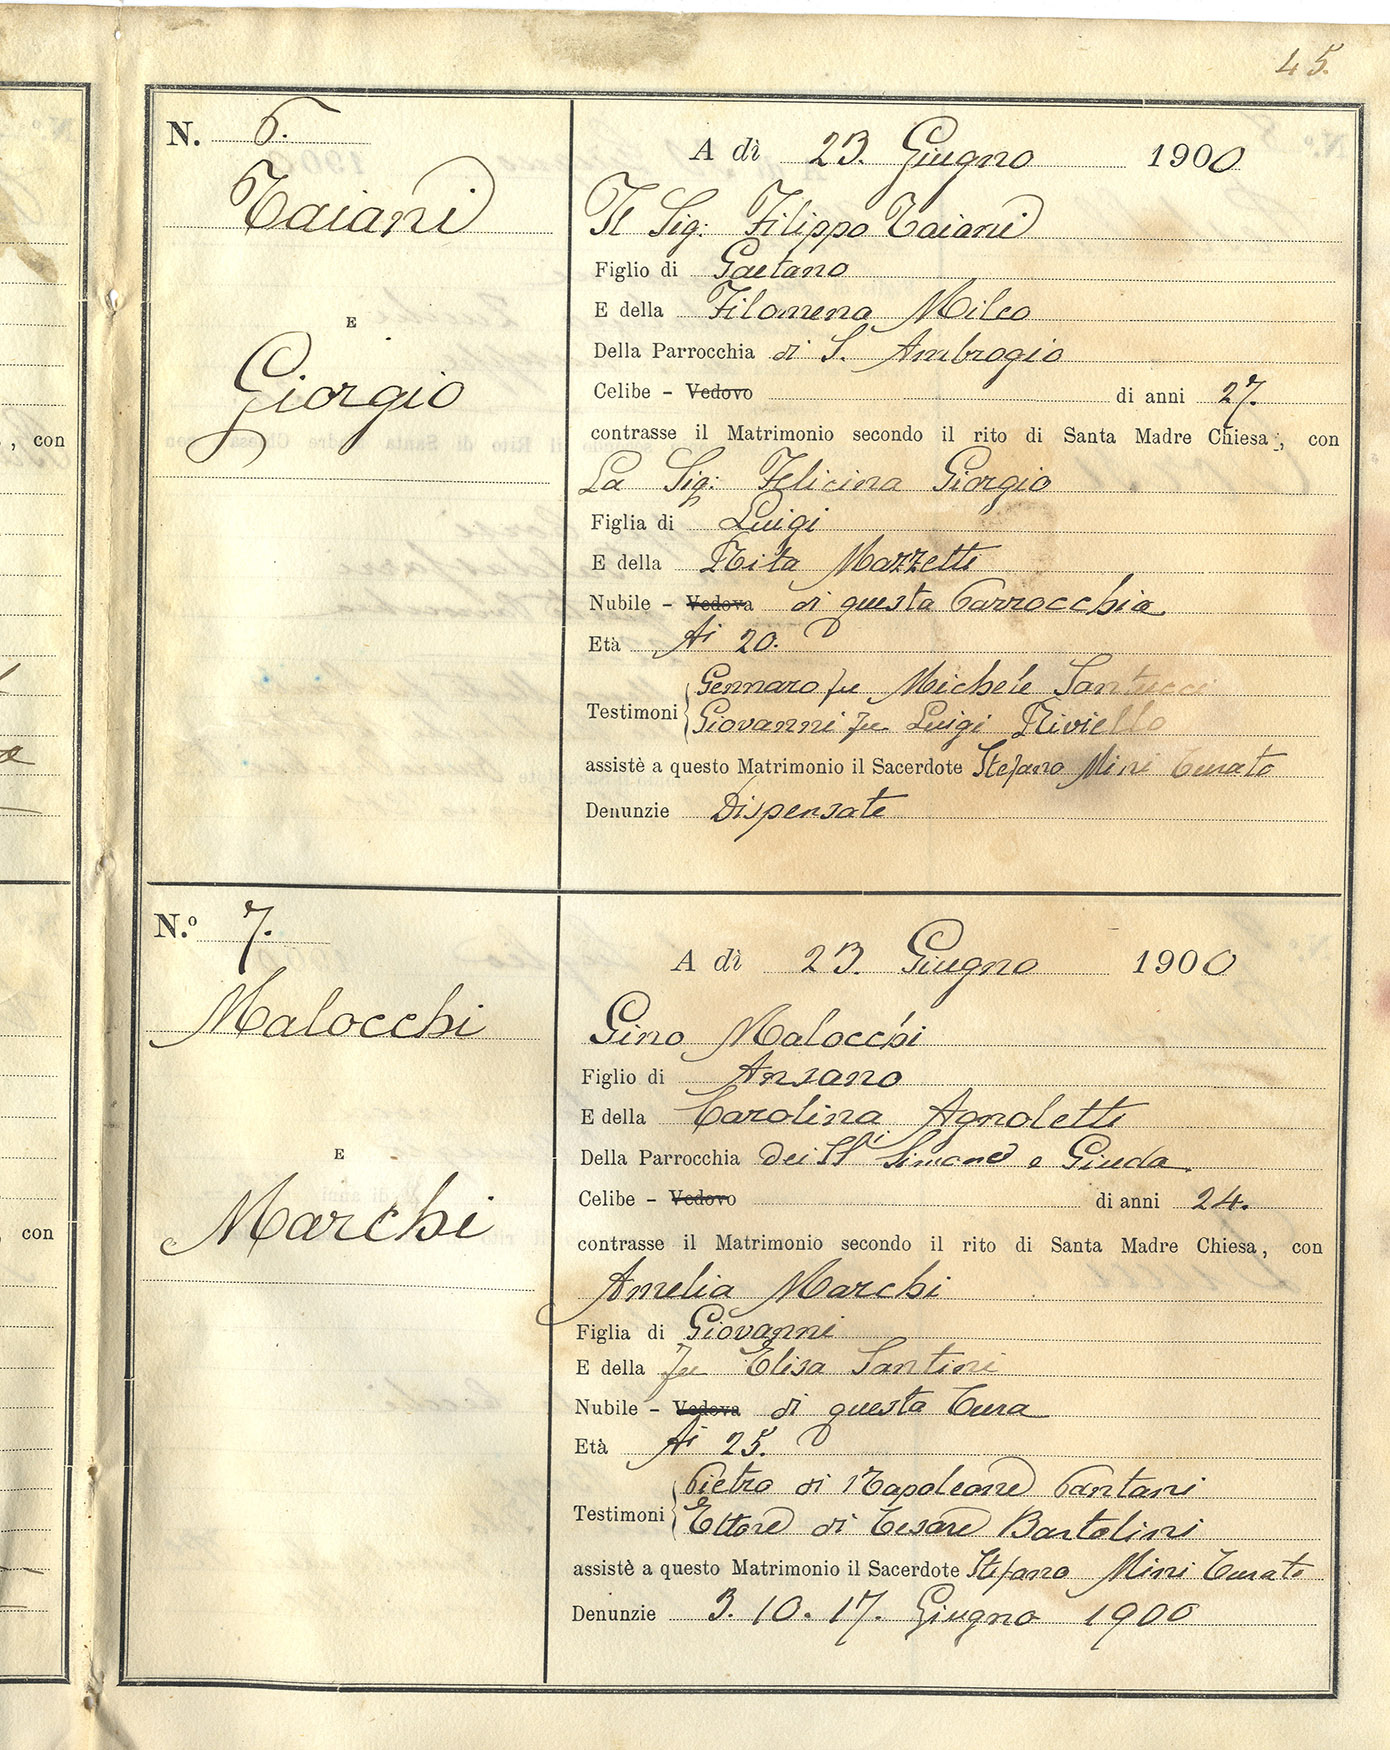 45.
N. 6.
Taiani
E
Giorgio
A dì 23. Giugno 1900
Il Sig: Filippo Taiani
Figlio di Gaetano
E della Filomena Milco
Della Parrocchia di S. Ambrogio
Celibe - Vedovo di anni 27.
contrasse il Matrimonio secondo il rito di Santa Madre Chiesa, con
La Sig: Felicina Giorgio
Figlia di Luigi
E della Rita Mazzetti
Nubile - Vedova di questa Parrocchia
Età Ai 20.
Gennaro fu Michele Santucci
Testimoni
Giovanni fu Luigi Riviello
assistè a questo Matrimonio il Sacerdote Stefano Mini Curato
Denunzie Dispensate
N.º 7.
Malocchi
E
Marchi
A dì 23. Giugno 1900
Gino Malocchi
Figlio di Ansano
E della Carolina Agnoletti
Della Parrocchia dei SSi Simone e Giuda
Celibe - Vedovo di anni 24.
contrasse il Matrimonio secondo il rito di Santa Madre Chiesa, con
Amelia Marchi
Figlia di Giovanni
E della fu Elisa Santini
Nubile - Vedova di questa Cura
Età Ai 25.
Pietro di Napoleone Pantani
Testimoni
Ettore di Cesare Bartolini
assistè a questo Matrimonio il Sacerdote Stefano Mini Curato
Denunzie 3. 10. 17. Giugno 1900
, con
con